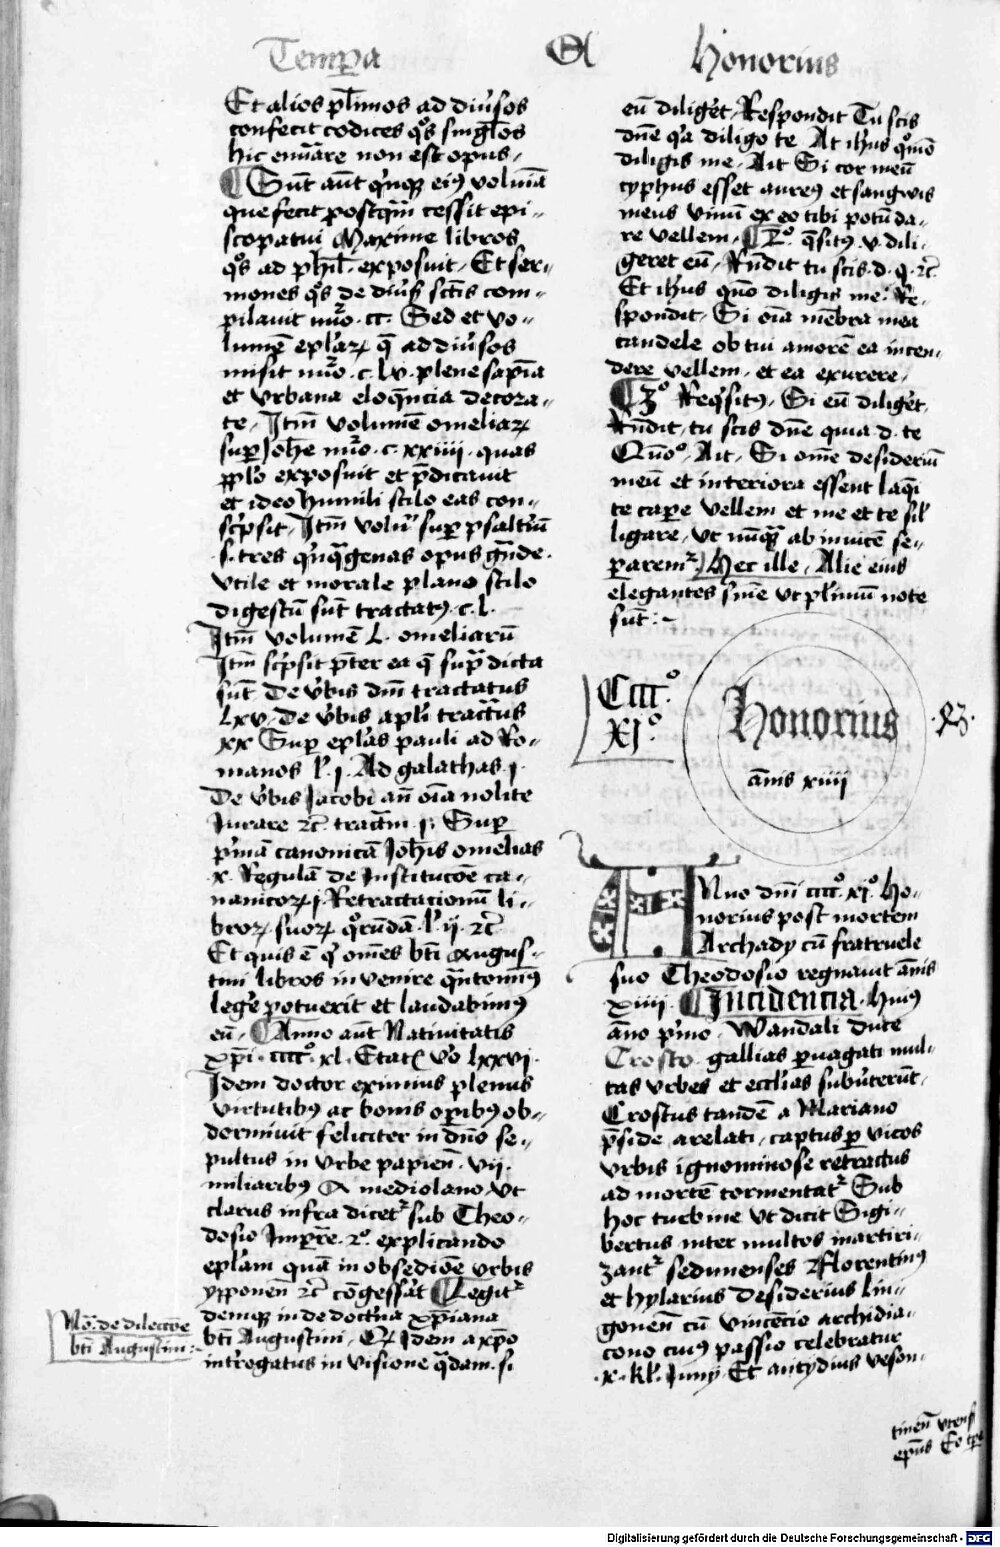 Tempora Et Honorius
Et alios pl̄imos ad diu̓sos
confecit codices qͦs singl̄os
hic enu̅are non est opus ·
Sunt aut̄ qͥnqꝫ eiꝰ volum̄a
que fecit postqͣm cessit epi-
scopatui Maxime libros
qͦs ad ph̄il · exposuit · Et ser-
mones qͦs de diu̓s sct̄is com-
pilauit nūo · cc · Sed et vo-
lumē epl̄aꝝ q̄ ad diu̓sos
misit nūo · c · lv · plene sap̄ia
et vrbana eloq̄ncia decora-
te · Itm̄ volumē omeliaꝝ
suꝑ Joh̄e nūo · c · xxiiii · quas
ꝓplo exposuit et p̄dicauit
et ideo humili stilo eas con-
sc̓psit · Itm̄ volu̓ suꝑ psalt̓iū
· s · tres qͥnqͣgenas opus gn̄de ·
vtile et morale plano stilo
digestū sūt tractatꝰ · c · l ·
Itm̄ volumē L · omeliarū
Itm̄ sc̓psit p̄ter ea q̄ supͣ dicta
sūt De v̓bis dn̄i tractatus
Lxv · De v̓bis apl̄i tract̄us
xx Suꝑ epl̄as pauli ad Ro-
manos l̓ · j · Ad galathas · j ·
De v̓bis Jacobi an̄ oīa nolite
Jurare ⁊c̄ tractm̄ · j · Suꝑ
p̓mā canonicā Joh̄is omelias
· x · Regulā de Institucōe ca-
nanicoꝝ j · Retractacionū li-
broꝝ suoꝝ qͦrūdā l̓ · ij · ⁊c̄
Et quis ē qͥ om̄es bt̄i Augus-
tini libros in venire qͣntomīꝰ
leg̓e potuerit et laudabimꝰ
eū · Anno aut̄ Natiuitatis
xp̄i · ccccͦ · xl · Etatꝭ v̓o lxxvj ·
Idem doctor eximius plenus
virtutibꝰ ac bonis oꝑibꝰ ob-
dormiuit feliciter in dn̄o se-
pultus in vrbe papien̄ · vij ·
miliaribꝰ a mediolano · vt
clarus infra dicet᷑ sub Theo-
dosio Imꝑre · 2ͦ · explicando
epl̄am quā in obsedioē vrbis
ypponen̄ ⁊c̄ cōgess̓at Legit᷑
demqꝫ in de doct̓na xp̄iana
bt̄i Augustini · Qꝫ Idem a xp̄o
int̓rogatus in visione qͣdam · si
Nō : de dilectōe
bt̄i Augustini :
eū dilig̓et · Respondit Tu scis
dn̄e qͥa diligo te At ih̄us qͦmō
diligis me · Ait Si cor meū
cyphus esset aureꝰ et sangwis
meus vinū ex eo tibi potū da-
re vellem · 2ͦ · q̄sitꝰ · v · dili-
geret eū · Rn̄dit tu scis · d · q · ⁊c̄
Et ih̄us quō diligis me · Re-
spondit · Si oīa mēbra mea
candele ob tui amorē ea incen-
dere vellem · et ea exurere ·
3ͦ Reqͥsitꝰ · Si eū dilig̓et ·
Rn̄dit · tu scis dn̄e quia d · te
Quōͦ · Ait · Si om̄e desideriū
meū et interiora essent laq̄i
te caꝑe vellem et me et te sil̓
ligare · vt nūqͣꝫ ab inuicē se-
ꝑarem᷑ Hec ille · Alie eius
elegantes sn̄ie vt pl̓imū note
sūt : ~
Ccccͦ ·
XIͦ ·
Honorius
an̄is xiiij
Anno dn̄i ccccͦ · xjͦ · Ho-
norius post mortem
Archady cū fratruele
suo Theodosio regnauit an̄is
xiiij · Incidencia · Huiꝰ
an̄o p̓mo · Wandali duce
Crosto · gallias ꝑuagati mul-
tas vrbes et eccl̄ias subu̓terūt ·
Crostus tandē a Mariano
p̄side arelati · captus ꝑ vicos
vrbis ignominose retractus
ad mortē tormentat᷑ Sub
hoc turbine vt dicit Sigi-
bertus inter multos martiri-
zant᷑ sedunenses Florentinꝰ
et hylarius Desiderius lin-
gonen̄ cū vincēcio archidia-
cono cuiꝰ passio celebratur
· x · kl̓ · Junij · Et antydius veson-
Digitalisierung gefördert durch die Deutsche Forschungsgemeinschaft - DFG